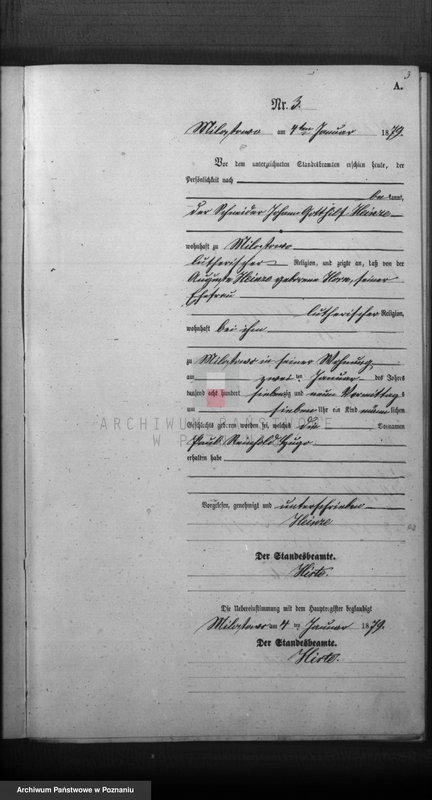 3
A.
Nr. 3.
Milostowo am 4ten Januar 1879.
Vor dem unterzeichneten Standesbeamten erschien heute, der
Persönlichkeit nach
be kannt,
der Schneider Johann Gotthilf Heinze
wohnhaft zu Milostowo
lutherischer Religion, und zeigte an, daß von der
Auguste Heinze geborene Horn, seiner
Ehefrau
lutherischer Religion,
wohnhaft bei ihm
zu Milostowo in seiner Wohnung
am zwei ten Januar des Jahres
tausend acht hundert siebenzig und neun Vormittags
um sieben Uhr ein Kind männ lichen
Geschlechts geboren worden sei, welches die Vornamen
Paul Reinhold Hugo
erhalten habe
Vorgelesen, genehmigt und unterschrieben
Heinze
Der Standesbeamte.
Hirte.
Die Uebereinstimmung mit dem Hauptregister beglaubigt
Milostowo am 4 ten Januar 1879.
Der Standesbeamte.
Hirte.
ARCHIWUM PAŃSTWOWE
W POZNANIU
Archiwum Państwowe w Poznaniu